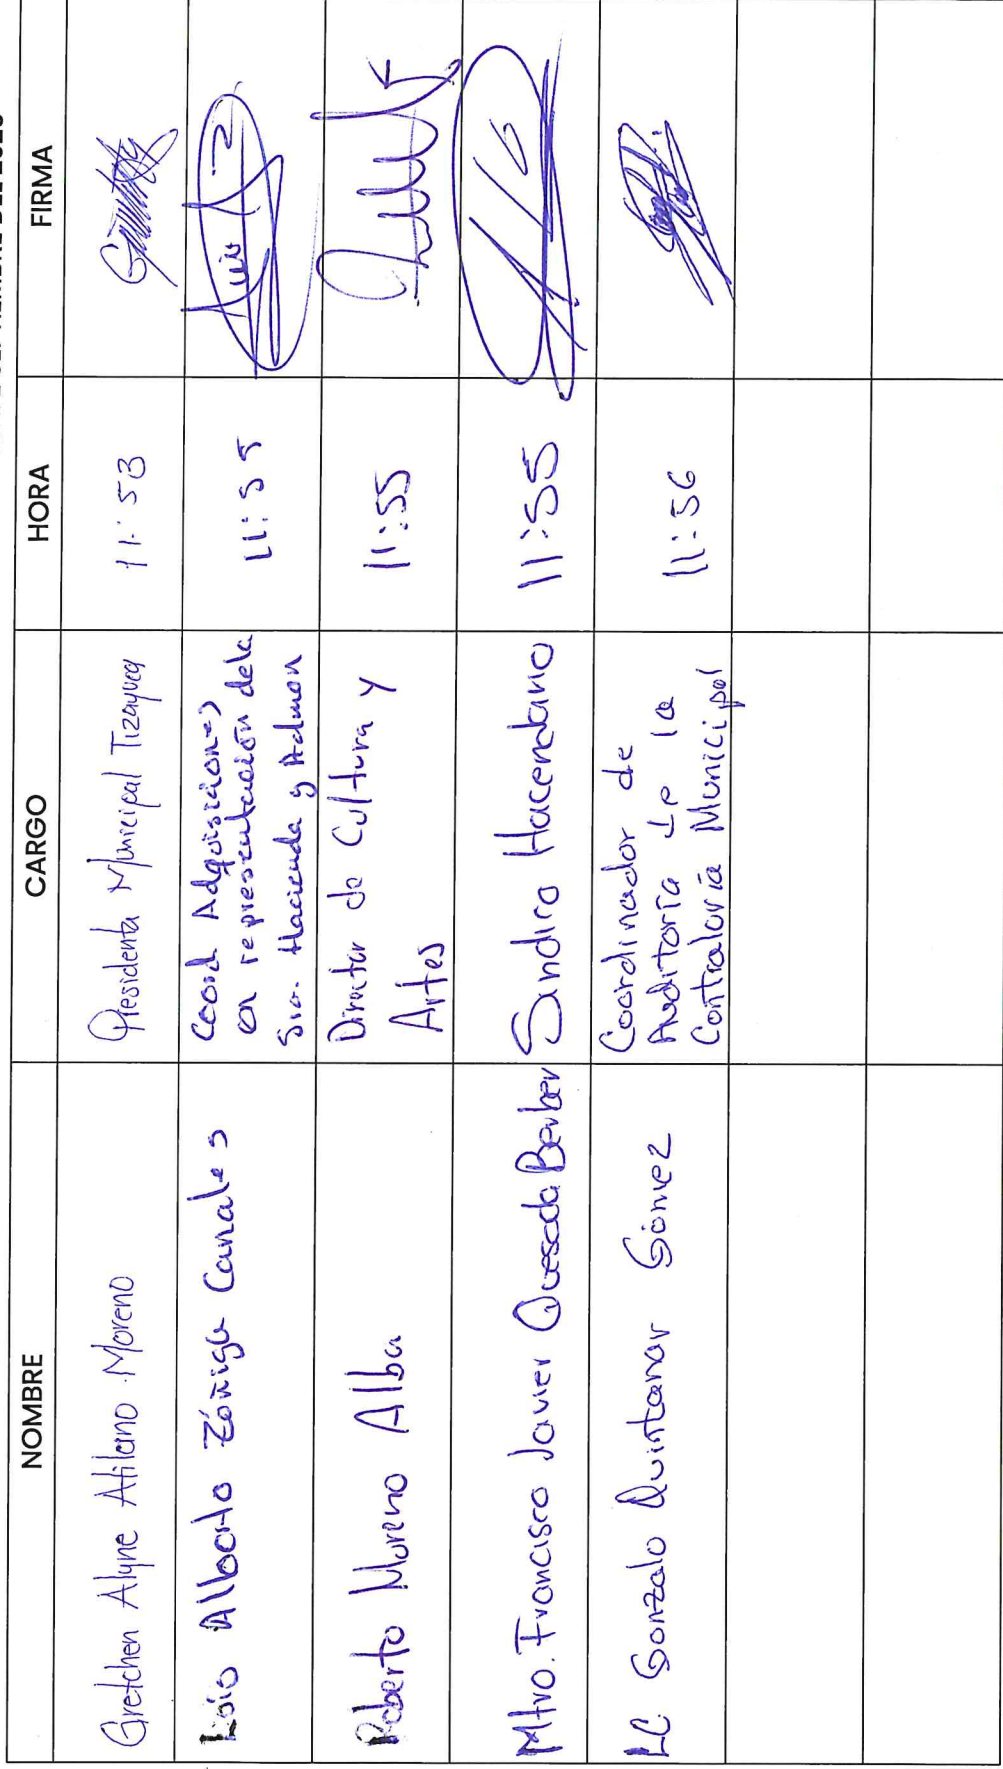 NOMBRE CARGO HORA FIRMA
Gretchen Alyne Atilano Moreno Presidenta Municipal Tizayuca 11:53
Luis Alberto Zúñiga Canales Coord Adquisiciones
en representación de la
Sria. Hacienda y Admon 11:55
Roberto Moreno Alba Director de Cultura y
Artes 11:55
Mtro. Francisco Javier Quesada Barber Sindico Hacendario 11:55
LC Gonzalo Quintanar Gómez Coordinador de
Auditoría de la
Contraloría Municipal 11:56